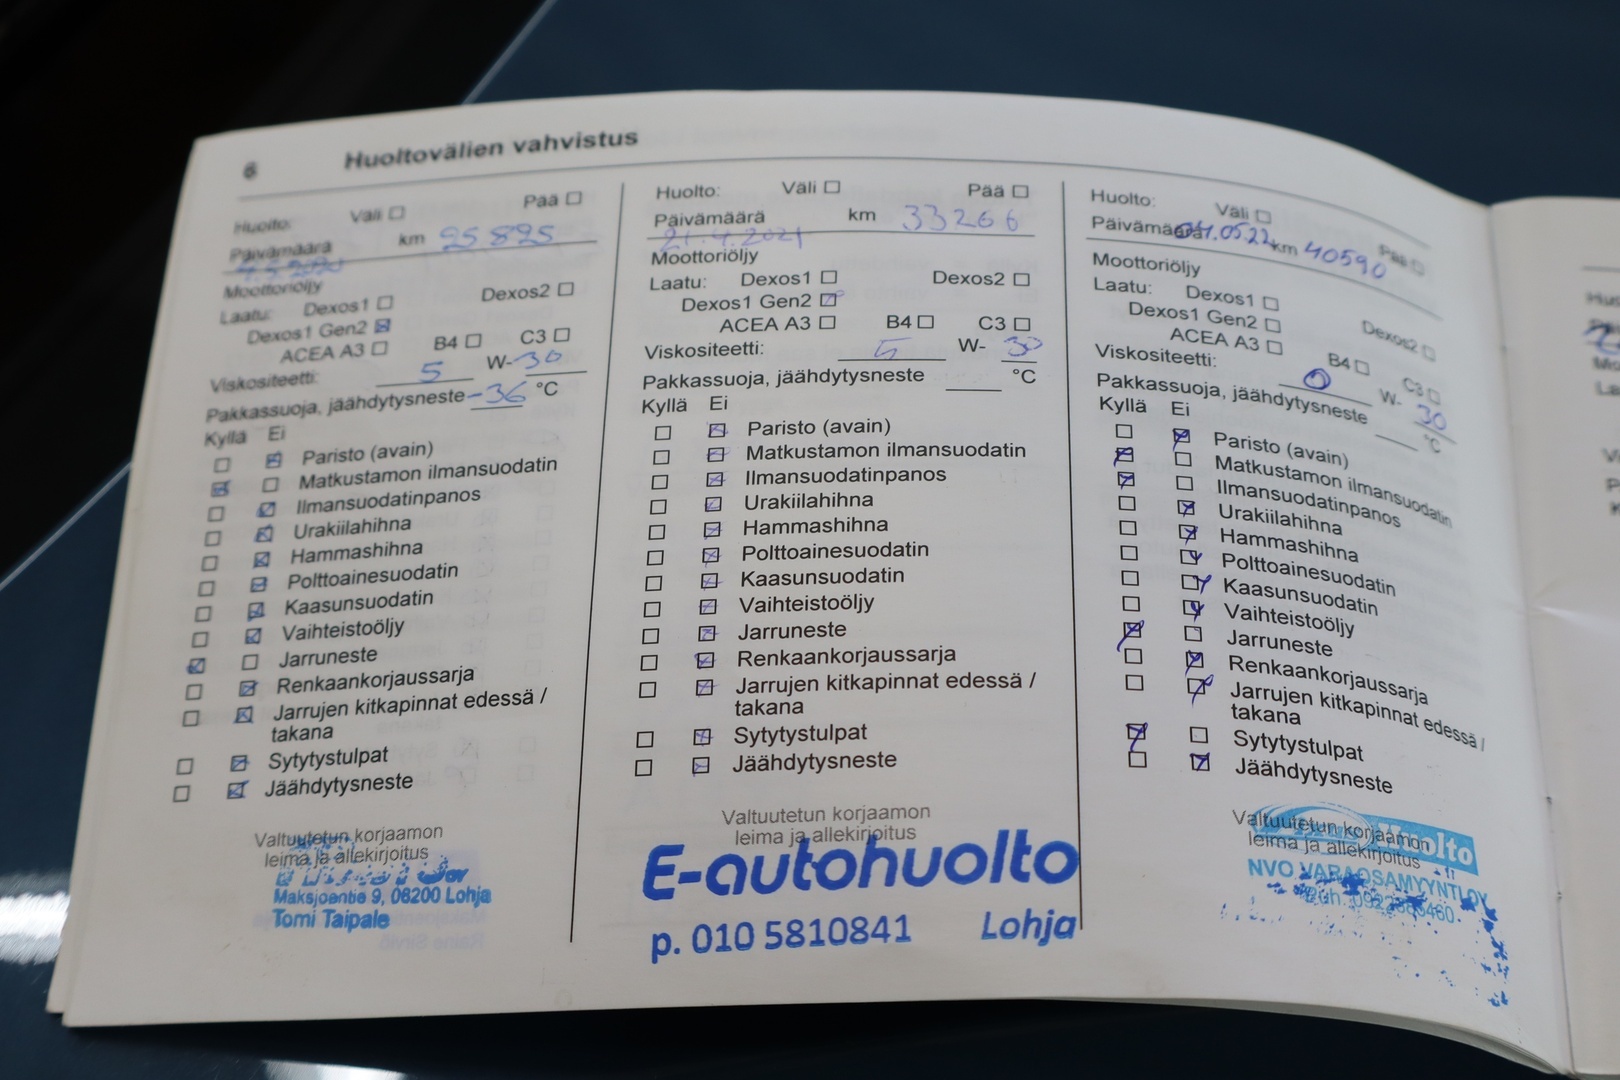 6 Huoltovälien vahvistus
Huolto: Väli Pää
Päivämäärä km 25 825
Moottoriöljy
Laatu: Dexos1 Dexos2
Dexos1 Gen2
ACEA A3 B4 C3
Viskositeetti: 5 W-30
Pakkassuoja, jäähdytysneste -36 °C
Kyllä Ei
Paristo (avain)
Matkustamon ilmansuodatin
Ilmansuodatinpanos
Urakiilahihna
Hammashihna
Polttoainesuodatin
Kaasunsuodatin
Vaihteistoöljy
Jarruneste
Renkaankorjaussarja
Jarrujen kitkapinnat edessä /
takana
Sytytystulpat
Jäähdytysneste
Valtuutetun korjaamon
leima ja allekirjoitus
Maksjoentie 9, 08200 Lohja
Tomi Taipale
Huolto: Väli Pää
Päivämäärä km 33266
21.4.2021
Moottoriöljy
Laatu: Dexos1 Dexos2
Dexos1 Gen2
ACEA A3 B4 C3
Viskositeetti: 5 W- 30
Pakkassuoja, jäähdytysneste °C
Kyllä Ei
Paristo (avain)
Matkustamon ilmansuodatin
Ilmansuodatinpanos
Urakiilahihna
Hammashihna
Polttoainesuodatin
Kaasunsuodatin
Vaihteistoöljy
Jarruneste
Renkaankorjaussarja
Jarrujen kitkapinnat edessä /
takana
Sytytystulpat
Jäähdytysneste
Valtuutetun korjaamon
leima ja allekirjoitus
E-autohuolto
p. 010 5810841 Lohja
Huolto: Väli Pää
Päivämäärä 04.05.22 km 40590
Moottoriöljy
Laatu: Dexos1 Dexos2
Dexos1 Gen2
ACEA A3 B4 C3
Viskositeetti: 0 W- 30
Pakkassuoja, jäähdytysneste °C
Kyllä Ei
Paristo (avain)
Matkustamon ilmansuodatin
Ilmansuodatinpanos
Urakiilahihna
Hammashihna
Polttoainesuodatin
Kaasunsuodatin
Vaihteistoöljy
Jarruneste
Renkaankorjaussarja
Jarrujen kitkapinnat edessä /
takana
Sytytystulpat
Jäähdytysneste
Valtuutetun korjaamon
leima ja allekirjoitus
Huolto
NVO VARAOSAMYYNTI OY